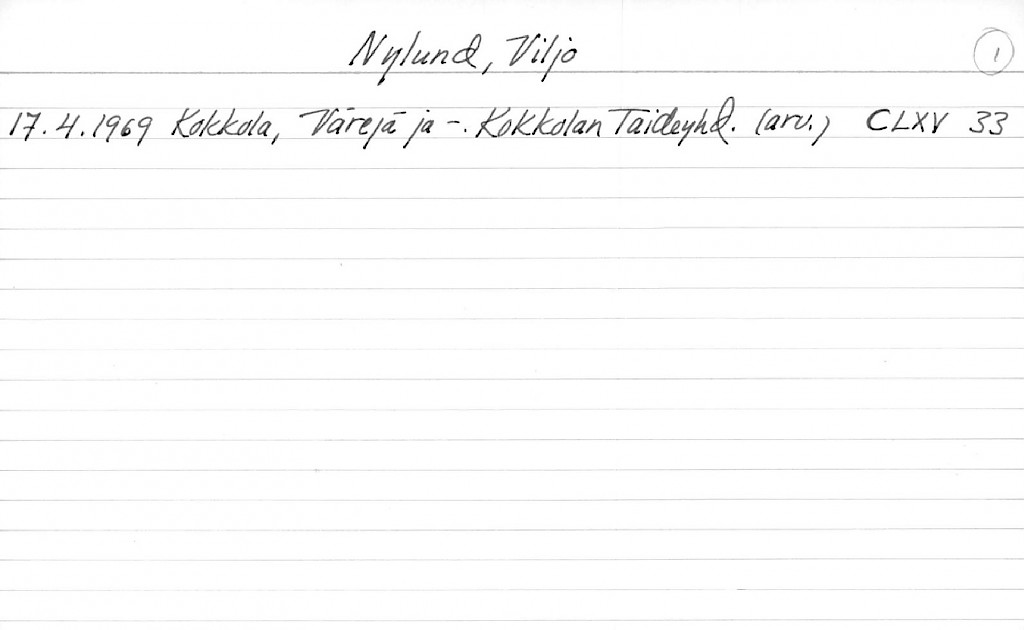 Nylund, Viljo 1
17.4.1969 Kokkola, Värejä ja -. Kokkolan Taideyhd. (arv.) CLXV 33